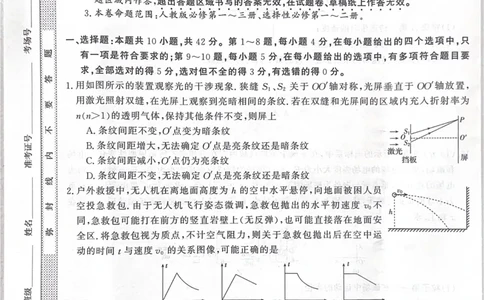 题区域内作答,超出答题区域书写的答案无效,在试题卷、草稿纸上作答无效。
3.本卷命题范围:人教版必修第一~三册、选择性必修第一~二册。
一、选择题:本题共 10 小题,共 42 分。第 1~8 题,每小题 4 分,在每小题给出的四个选项中,只
有一项是符合要求的;第 9~10 题,每小题 5 分,在每小题给出的选项中,有多项符合题目要
求,全部选对的得 5 分,选对但不全的得 3 分,有选错的得 0 分。
1.用如图所示的装置观察光的干涉现象.狭缝 S₁、S₂ 关于 OO′轴对称,光屏垂直于 OO′轴放置,
用激光照射双缝,在光屏上观察到亮暗相间的条纹.若在双缝和光屏间的区域内充入折射率为
n(n>1)的透明气体,保持其他条件不变,则屏上
A.条纹间距不变,O′点变为暗条纹
B.条纹间距增大,无法确定 O′点是亮条纹还是暗条纹
C.条纹间距减小,O′点仍为亮条纹
D.条纹间距不变,无法确定 O′点是亮条纹还是暗条纹
P
S₁
O
O′
S₂
激光
挡板
屏
2.户外救援中,无人机在离地面高度为 h 的空中水平悬停,向地面被困人员
空投急救包.由于无人机飞行姿态微调,急救包抛出的水平初速度 v₀不
同,急救包可能打在前方的竖直岩壁上(无反弹),也可能直接落在地面安
全区.将急救包视为质点,不计空气阻力,则关于急救包抛出后在空中运
动的时间 t 与速度 v₀ 的关系图像,可能正确的是
v₀
h
t
t
t
t
考场号
准考证号
姓名
班级
题
答
要
不
内
线
封
弥